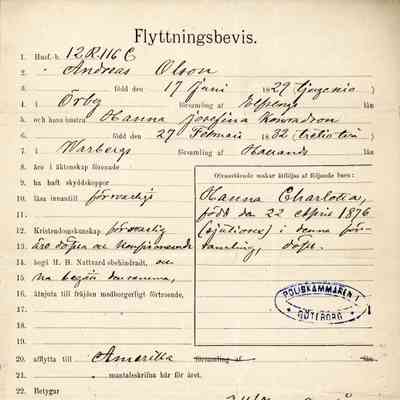 Flyttningsbevis.
1. Husf.-b. 12 R. 116 C
2. Andreas Olson
3. född den 17 Juni 1829 tjugonio)
4. i Örby församling af Elfsborgs län
5. och hans hustru Hanna Josefina Konradson
6. född den 27 Februari 1832 trettiotvå)
7. i Warbergs församling af Hallands län
8. äro i äktenskap förenade
9. ha haft skyddskoppor
10. läsa innantill försvarligt
11.
12. Kristendomskunskap försvarlig
13. äro döpta och konfirmerade
14. begå H. H. Nattvard obehindradt, och
15. ha begått densamma,
16. åtnjuta till fräjden medborgerligt förtroende,
17.
18.
19.
20. afflytta till Amerika församling af län
21. mantalsskrifna här för året.
22. Betygar
Ofvanstående makar åtföljas af följande barn:
Hanna Charlotta,
född den 22 1876
(sjuttiosex) i denna för-
samling, döpt.
POLISKAMMAREN I
GÖTEBORG